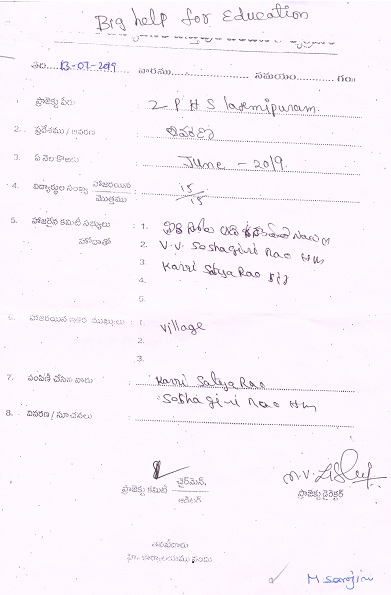 Big help for Education
తేది....13-07-2019 వారము.................. సమయం............గం॥
1. ప్రాజెక్టు పేరు : Z P H S laxmipuram
2. ప్రదేశము / వివరణ :
3. ఏ నెల కొరకు : June - 2019
4. విద్యార్థుల సంఖ్య హాజరయిన / మొత్తము : 15/15
5. హాజరైన కమిటీ సభ్యులు హోదాతో : 1.
2. V.V. Seshagiri Rao Hm
3. Karri Satya Rao
4.
5.
6. హాజరయిన ఇతర ముఖ్యులు : 1. village
2.
3.
7. పంపిణీ చేసిన వారు : Karri Satya Rao
Seshagiri Rao Hm
8. వివరణ / సూచనలు :
ప్రాజెక్టు కమిటీ చైర్మెన్,
ఆడిటర్
ప్రాజెక్టు డైరెక్టర్
M Sarojini